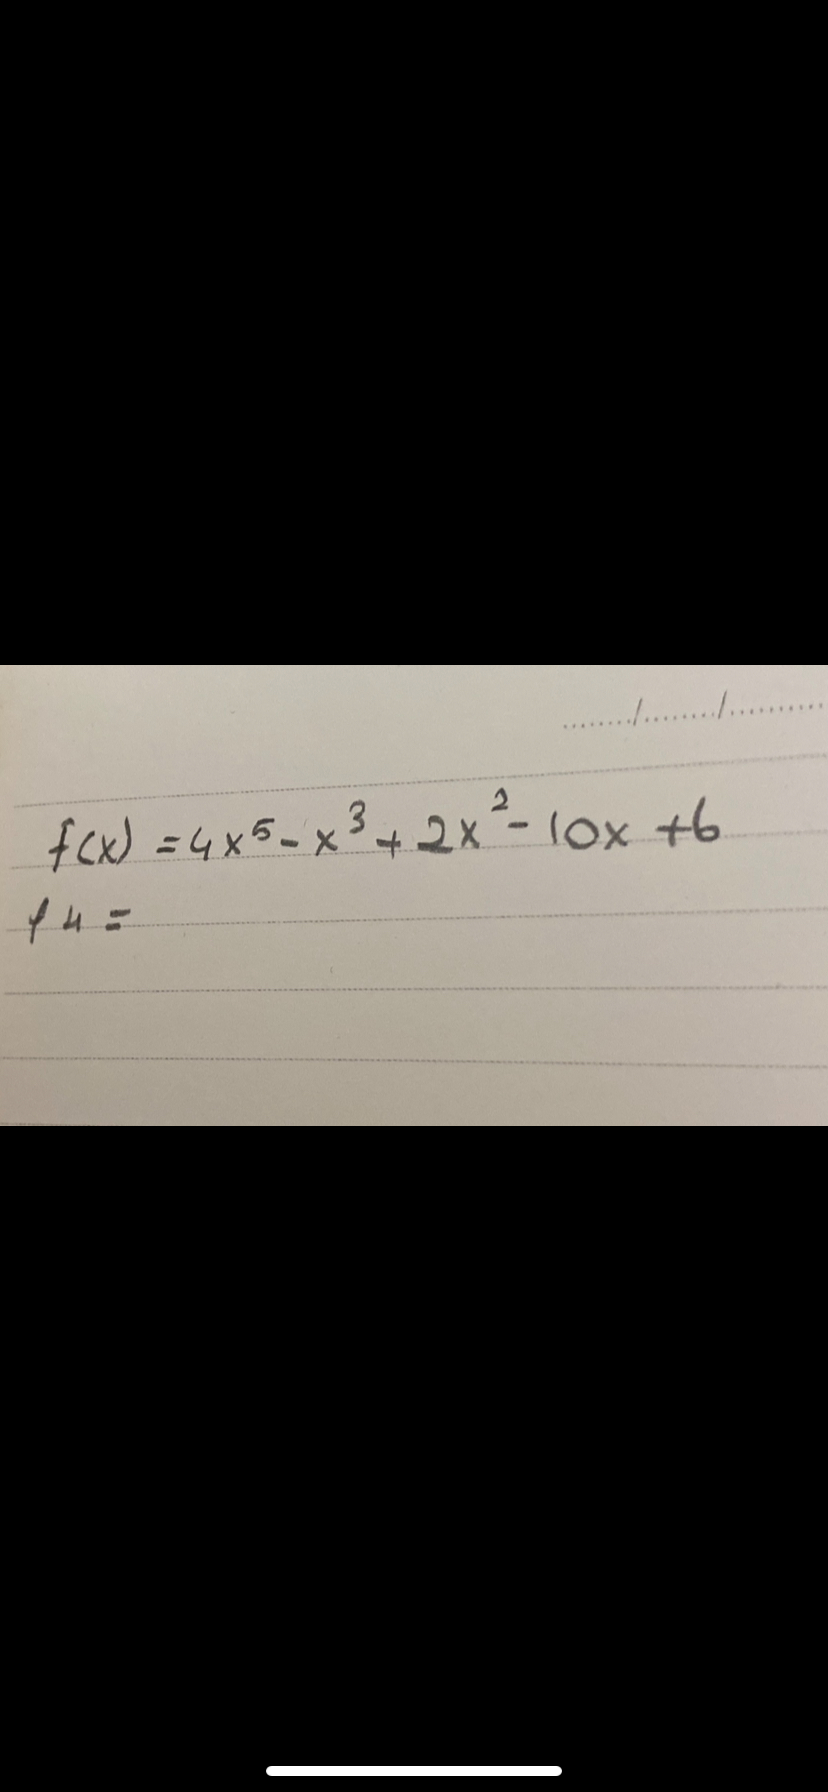 ......../......../..........
f(x) = 4x⁵ - x³ + 2x² - 10x + 6
f 4 =